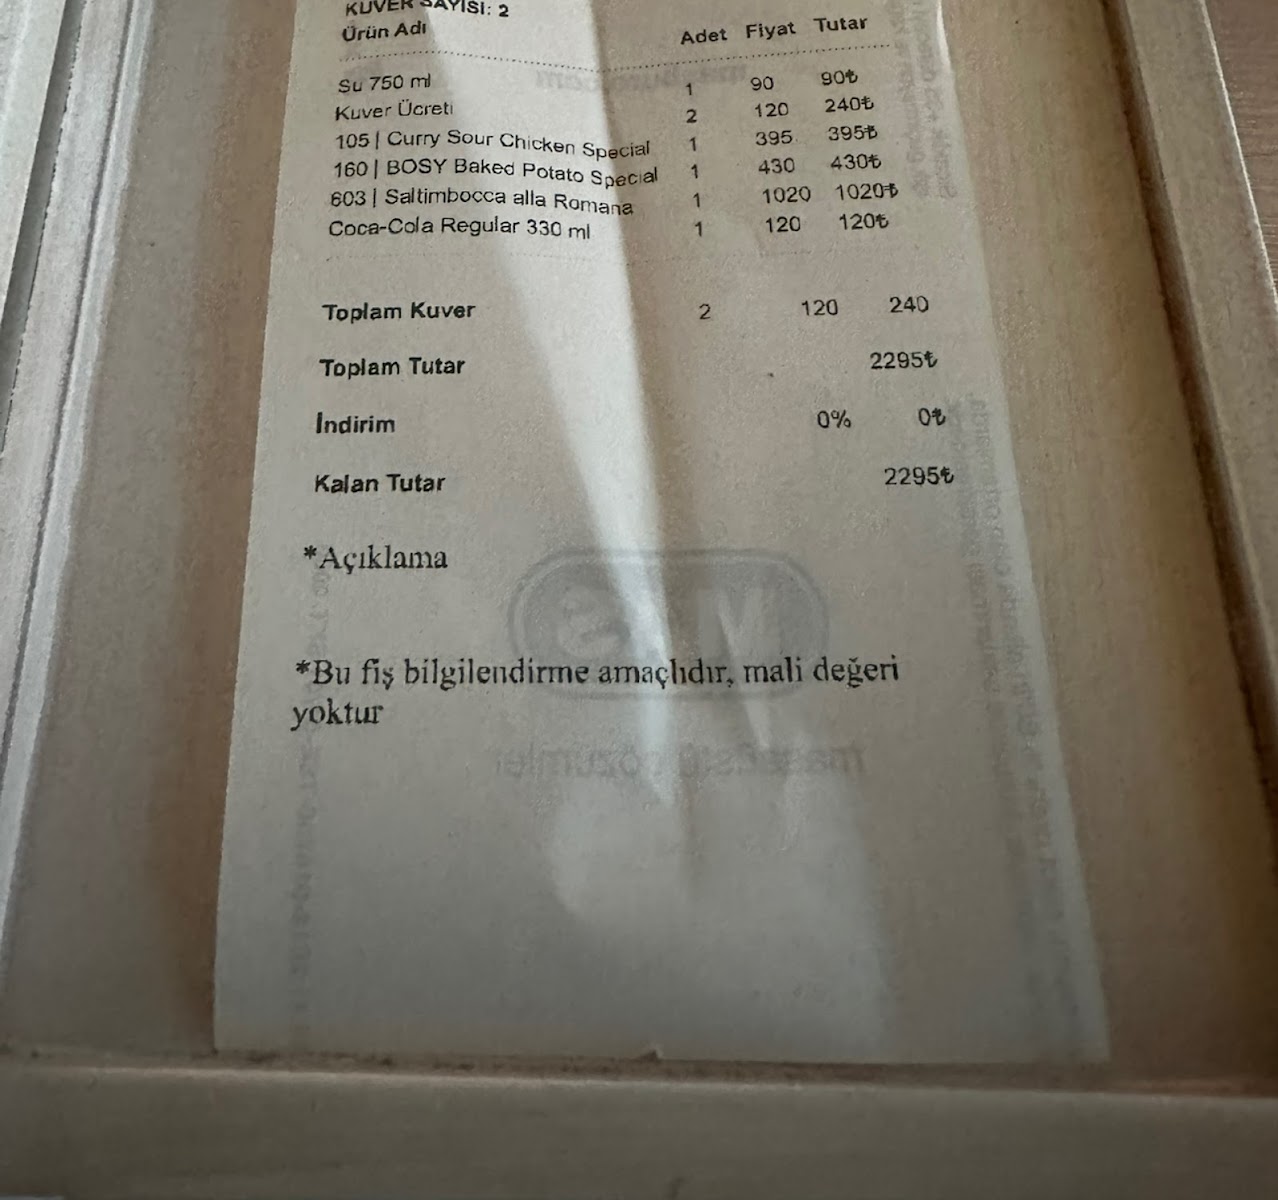 KUVER SAYISI: 2
Ürün Adı Adet Fiyat Tutar
Su 750 ml 1 90 90₺
Kuver Ücreti 2 120 240₺
105 | Curry Sour Chicken Special 1 395 395₺
160 | BOSY Baked Potato Special 1 430 430₺
603 | Saltimbocca alla Romana 1 1020 1020₺
Coca-Cola Regular 330 ml 1 120 120₺
Toplam Kuver 2 120 240
Toplam Tutar 2295₺
İndirim 0% 0₺
Kalan Tutar 2295₺
*Açıklama
*Bu fiş bilgilendirme amaçlıdır, mali değeri
yoktur